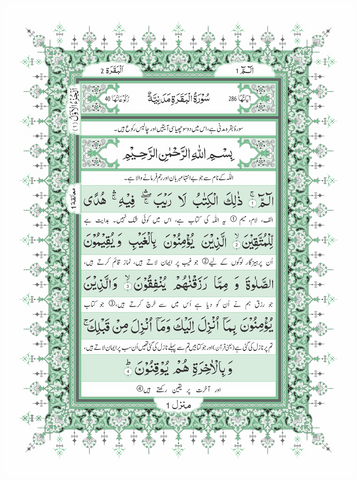 الٓمّٓ ١
اَلْبَقَرَة ٢
اٰیَاتُهَا 286
سُوْرَةُ الْبَقَرَةِ مَدَنِیَّةٌ
رُکُوْعَاتُهَا 40
سورۃ بقرہ مدنی ہے، اس میں دو سو چھیاسی آیتیں اور چالیس رکوع ہیں۔
بِسْمِ اللّٰهِ الرَّحْمٰنِ الرَّحِیْمِ
اللہ کے نام سے جو بے انتہا مہربان اور رحم فرمانے والا ہے۔
الٓمّٓ ۚ ذٰلِكَ الْكِتٰبُ لَا رَیْبَ ۛۖ فِیْهِ ۛۚ هُدًی
الف، لام، میم ① یہ اللہ کی کتاب ہے، اس میں کوئی شک نہیں۔ ہدایت ہے
لِّلْمُتَّقِیْنَ ۙ الَّذِیْنَ یُؤْمِنُوْنَ بِالْغَیْبِ وَ یُقِیْمُوْنَ
اُن پرہیزگار لوگوں کے لیے ② جو غیب پر ایمان لاتے ہیں، نماز قائم کرتے ہیں،
الصَّلٰوةَ وَ مِمَّا رَزَقْنٰهُمْ یُنْفِقُوْنَ ۙ وَ الَّذِیْنَ
جو رزق ہم نے اُن کو دیا ہے اُس میں سے خرچ کرتے ہیں، ③ جو کتاب
یُؤْمِنُوْنَ بِمَاۤ اُنْزِلَ اِلَیْكَ وَ مَاۤ اُنْزِلَ مِنْ قَبْلِكَ ۚ
تم پر نازل کی گئی ہے (یعنی قرآن) اور جو کتابیں تم سے پہلے نازل کی گئی تھیں اُن سب پر ایمان لاتے ہیں،
وَ بِالْاٰخِرَةِ هُمْ یُوْقِنُوْنَ ؕ
اور آخرت پر یقین رکھتے ہیں ④
منزل ١